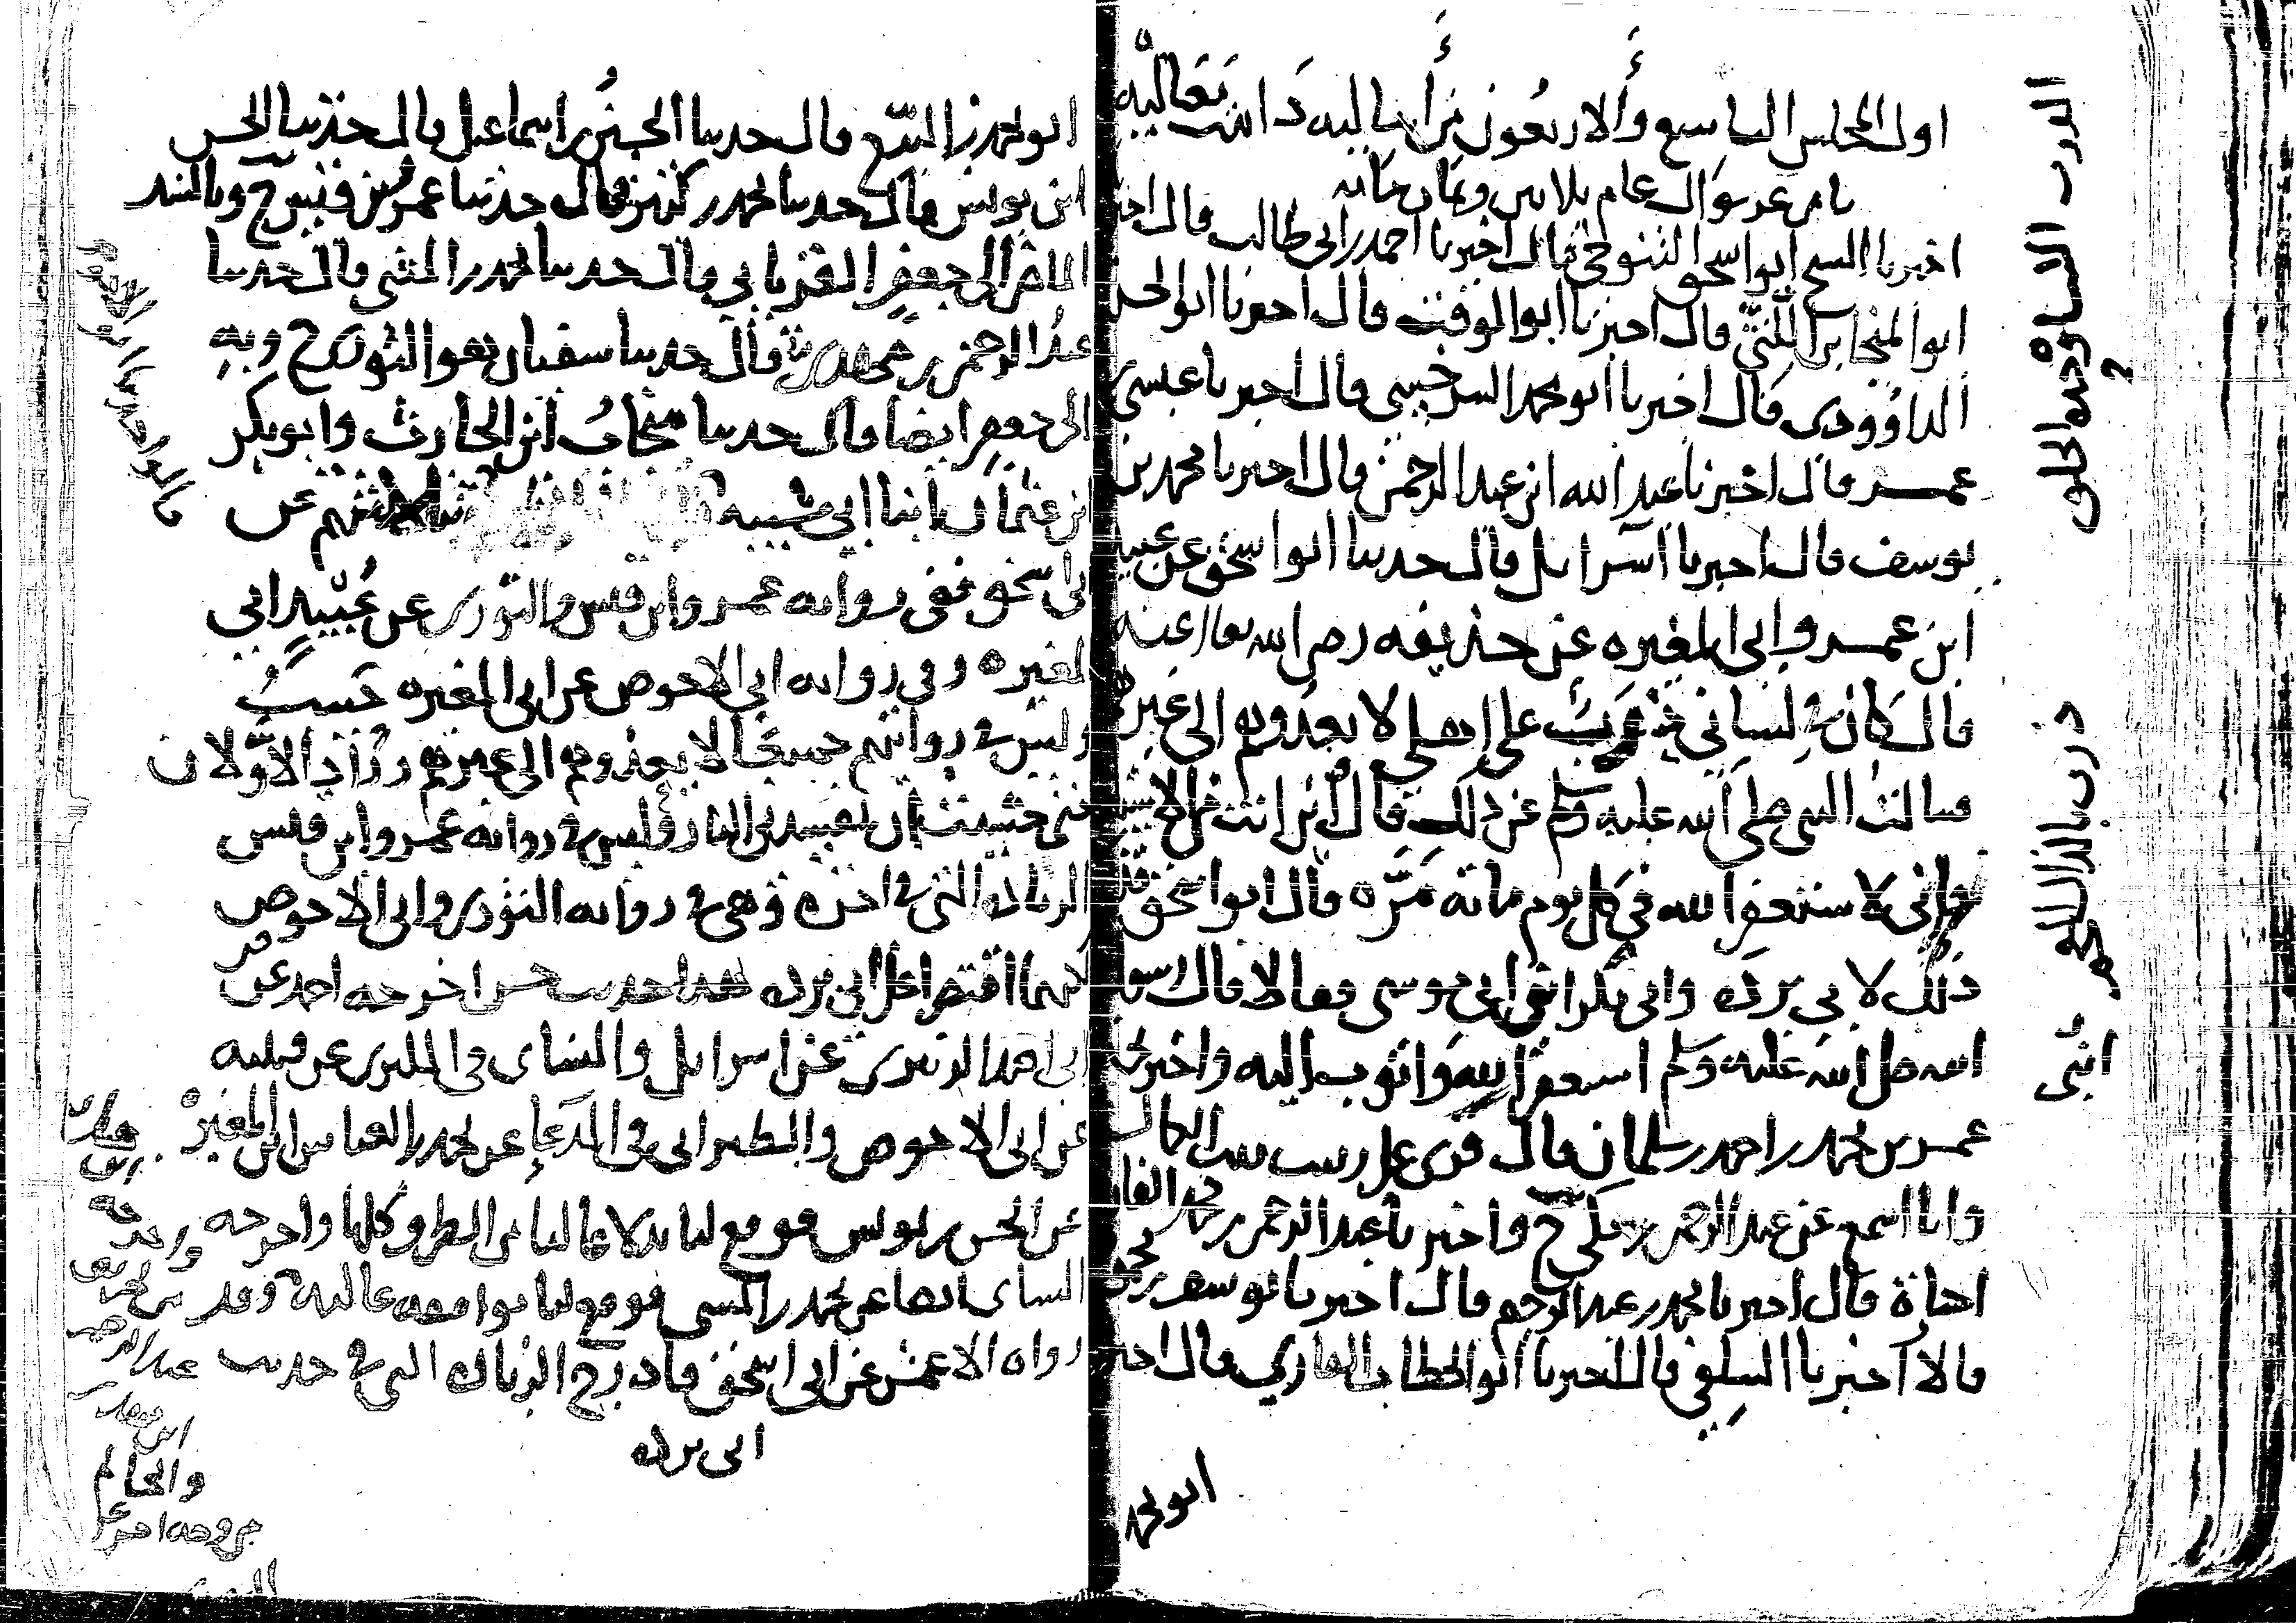 اول المجلس التاسع والاربعون من اماليه
ثامن عشر شوال عام ثلاثين وثمان مائه
اخبرنا الشيخ ابو اسحق التنوخي قال اخبرنا احمد بن ابي طالب قال اخبرنا
ابو المنجا بن اللتي قال اخبرنا ابو الوقت قال اخبرنا ابو الحسن
الداوودي قال اخبرنا ابو محمد السرخسي قال اخبرنا عيسى بن
عمر قال اخبرنا عبد الله ابن عبد الرحمن قال اخبرنا محمد بن
يوسف قال اخبرنا اسرايل قال حدثنا ابو اسحق عن عبيد
ابن عمرو ابي المغيره عن حذيفه رضي الله تعالى عنه
قال كان في لساني ذرب على اهلي لا يعدوهم الى غيرهم
فسالت النبي صلى الله عليه وسلم عن ذلك قال اين انت من الاستغفار
اني لاستغفر الله في كل يوم مائة مره قال ابو اسحق فذكرت
ذلك لابي برده وابي بكر ابني ابي موسى فقالا قال رسول
الله صلى الله عليه وسلم استغفر الله واتوب اليه واخبرني
عمر بن محمد بن احمد بن سلمان قال قرئ على زينب بنت الكمال
وانا اسمع عن عبد الرحمن بن مكي ح واخبرنا عبد الرحمن بن
قال اخبرنا محمد بن عبد الرحيم قال اخبرنا يوسف بن
قالا اخبرنا السلفي قال اخبرنا ابو الخطاب القاري قال اخبرنا
ابو محمد
الذرب
ذرب
انتهى
ابو محمد بن البيع قال حدثنا الحسين بن اسماعيل قال حدثنا الحسن
ابن يونس قال حدثنا محمد بن كثير قال حدثنا عمرو بن قيس ح وبالسند
الماضي الى جعفر الفريابي قال حدثنا محمد بن المثنى قال حدثنا
عبد الرحمن بن مهدي قال حدثنا سفيان هو الثوري ح وبه
الى جعفر ايضا قال حدثنا منجاب ابن الحارث وابو بكر
ابن عثمان ابنا ابي شيبه كلهم عن
ابي اسحق ففي روايه عمرو ابن قيس والثوري عن عبيد ابي
المغيره وفي روايه ابي الاحوص عن ابي المغيره حسب
وليس في روايتهم جميعا لا يعدوهم الى غيرهم وزاد الاولان
حتى خشيت ان يدخلني النار وليس في روايه عمرو ابن قيس
الزياده التي في اخره وهي في روايه الثوري وابي الاحوص
لكنهما اقتصرا على ابي برده هذا حديث حسن اخرجه احمد عن
ابي احمد الزبيري عن اسرايل والنساي في الكبرى عن قتيبه
عن ابي الاحوص والطبراني في الدعاء عن محمد بن العباس ابن المغيره
عن الحسن بن يونس فوقع لنا بدلا عاليا من الطرق كلها واخرجه
النساي ايضا عن محمد بن المثنى فوقع لنا موافقه عاليه وقد
رواه الاعمش عن ابي اسحق فادرج الزياده التي في حديث
ابي برده
قالوا حدثنا ابو الاحوص
واخرجه
من طريق
عبد الرحمن
ابن مهدي
والحاكم
من وجه اخر عن